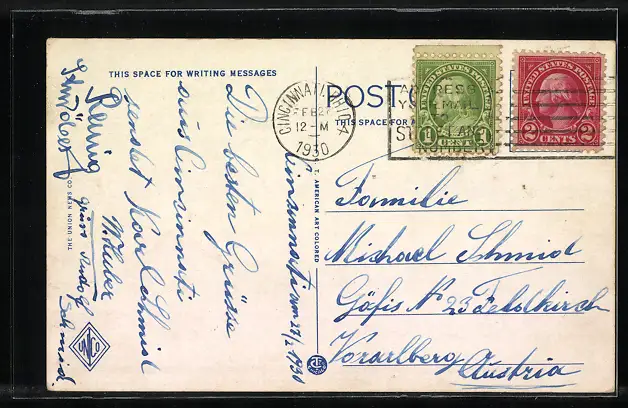 THIS SPACE FOR WRITING MESSAGES
Cincinnati am 27/2 1930
Die besten Grüsse
aus Cincinnati
sendet Karl Schmid
W. Huber
gruss Rudolf
Schmid
THE UNION NEWS CO
UNCO
C.T. AMERICAN ART COLORED
POST
THIS SPACE FOR A
CINCINNATI, OHIO
FEB 27
12-M
1930
ADDRESS
YOUR MAIL
TO
STREET AND
NUMBER
UNITED STATES POSTAGE
1 CENT 1
UNITED STATES POSTAGE
2 CENTS 2
Familie
Michael Schmid
Göfis No 23 Feldkirch
Vorarlberg
Austria